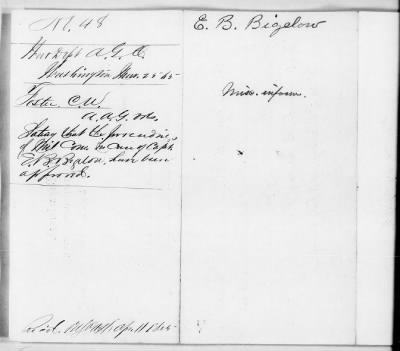 No. 48
War Dept A.G.O.
Washington Mar. 25 '65
Foster C.W.
A.A.G. Vols.
Stating that the proceedings
of Mil. Com. in case of Capt.
E.B. Bigelow have been
approved.
Apr 11 1865
E. B. Bigelow
Misc. inform.